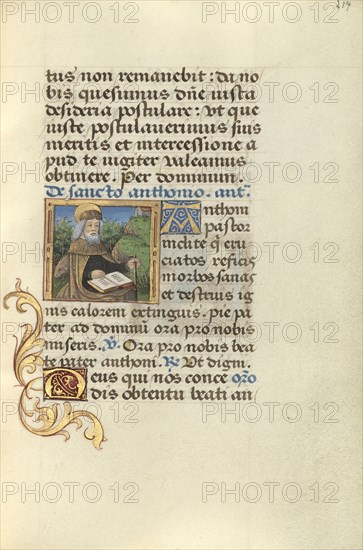 214
tus non remanebit : da no
bis quesumus dñe iusta
desideria postulare : ut que
iuste postulauerimus suis
meritis et intercessione a
pud te iugiter ualeamus
obtinere . Per dominum .
De sancto anthonio . ant̃.
Anthoni
pastor
inclite q̃ cru
ciatos reficis
morbos sanas
et destruis ig
nis calorem extinguis . pie pa
ter ad dominũ ora pro nobis
miseris . V̷ . Ora pro nobis bea
te pater anthoni . R̷ . Ut digni .
Deus qui nos conce orõ
dis obtentu beati an